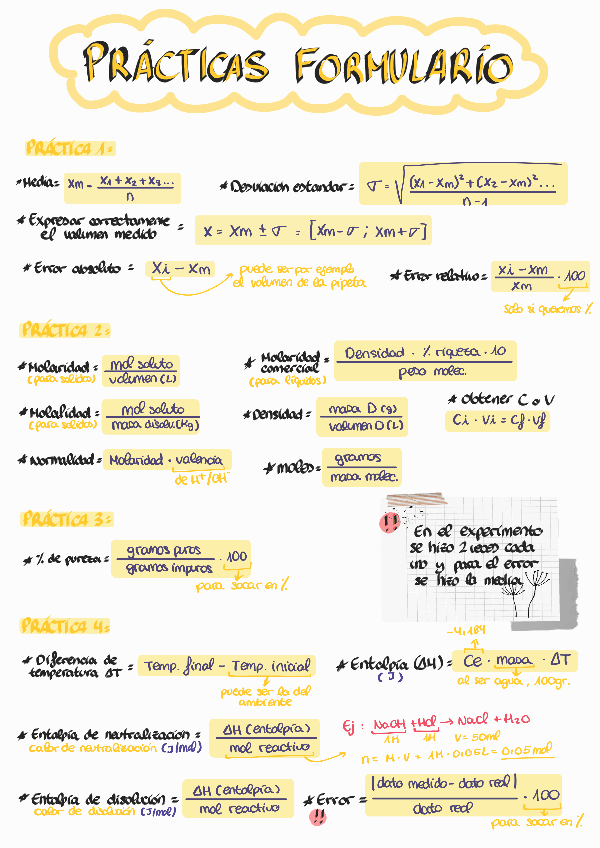 PRÁCTICAS FORMULARIO
PRÁCTICA 1:
*Media= Xm = (X1 + X2 + X3...) / n
*Desviación estandar = σ = √((X1 - Xm)² + (X2 - Xm)² ... / n-1)
*Expresar correctamente el volumen medido = X = Xm ± σ = [Xm-σ ; Xm+σ]
*Error absoluto = Xi - Xm
puede ser por ejemplo
el volumen de la pipeta
*Error relativo = (Xi - Xm) / Xm · 100
Solo si queremos %
PRÁCTICA 2:
*Molaridad = mol soluto / volumen (L)
(para solidos)
*Molaridad comercial = Densidad · % riqueza · 10 / peso molec.
(para líquidos)
*Molalidad = mol soluto / masa disolv.(Kg)
(para solidos)
*Densidad = masa D (g) / volumen D (L)
*Obtener C o V
Ci · Vi = Cf · Vf
*Normalidad = Molaridad · valencia
de H⁺/OH⁻
*moles = gramos / masa molec.
PRÁCTICA 3:
*% de pureza = gramos puros / gramos impuros · 100
para sacar en %
!!
En el experimento
se hizo 2 veces cada
uno y para el error
se hizo la media
PRÁCTICA 4:
*Diferencia de temperatura ΔT = Temp. final - Temp. inicial
puede ser la del
ambiente
-4,184
*Entalpía (ΔH) = Ce · masa · ΔT
(J)
al ser agua, 100gr.
*Entalpía de neutralización = ΔH (entalpía) / mol reactivo
calor de neutralización (J/mol)
Ej : NaOH + HCl → NaCl + H2O
1M 1M V= 50ml
n = M · V = 1M · 0,05L = 0,05 mol
*Entalpía de disolución = ΔH (entalpía) / mol reactivo
calor de disolución (J/mol)
*Error = |dato medido - dato real| / dato real · 100
!!
para sacar en %